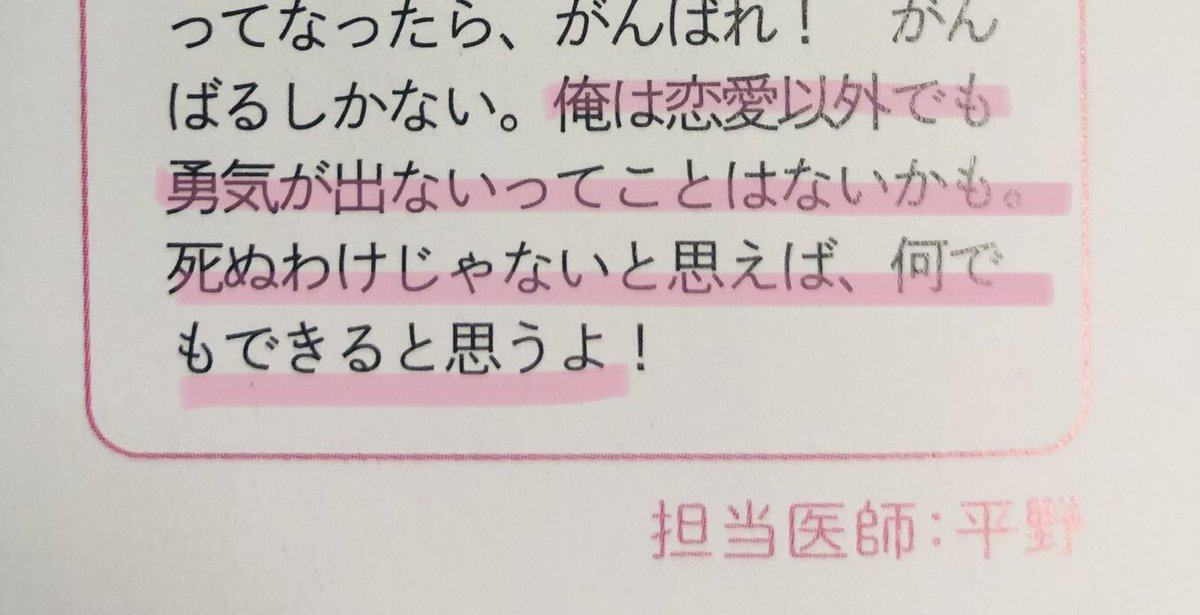 ってなったら、がんばれ！　がん
ばるしかない。俺は恋愛以外でも
勇気が出ないってことはないかも。
死ぬわけじゃないと思えば、何で
もできると思うよ！
担当医師：平野